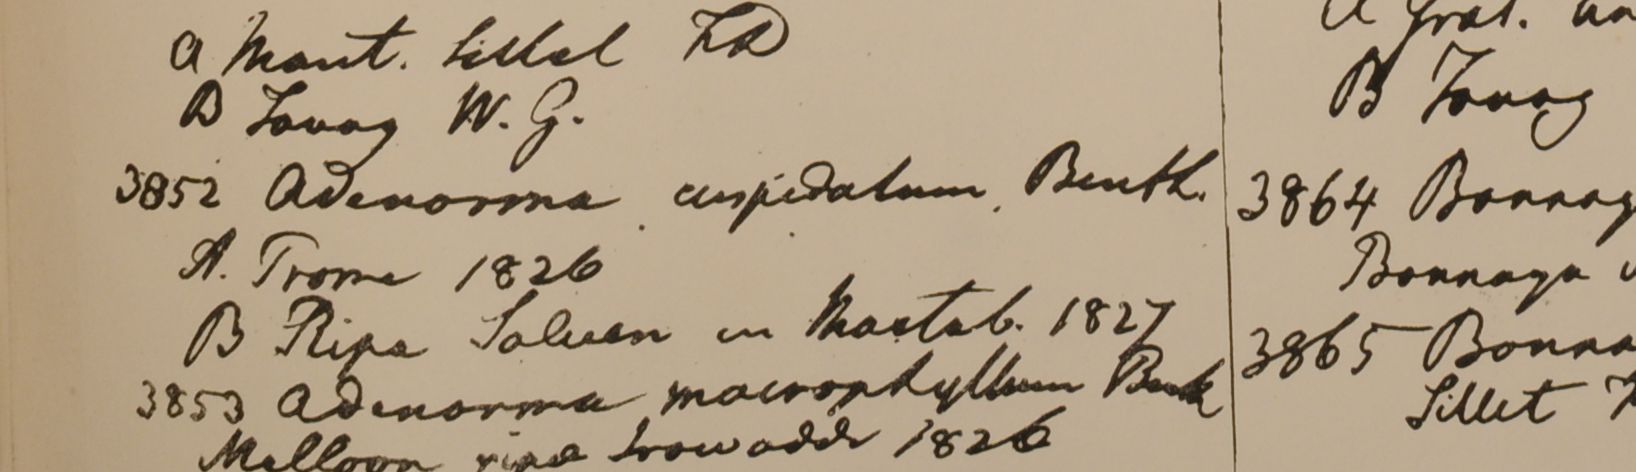 a Mont. Sillet FD
B Tavoy W. G.
3852 Adenosma cuspidatum, Benth.
A. Prome 1826
B Ripa Saluen in Martab. 1827
3853 Adenosma macrophyllum Benth
Melloon ripa Irowaddi 1826
a
B Tavoy
3864 Bonnay
Bonnaya
3865 Bonna
Sillet